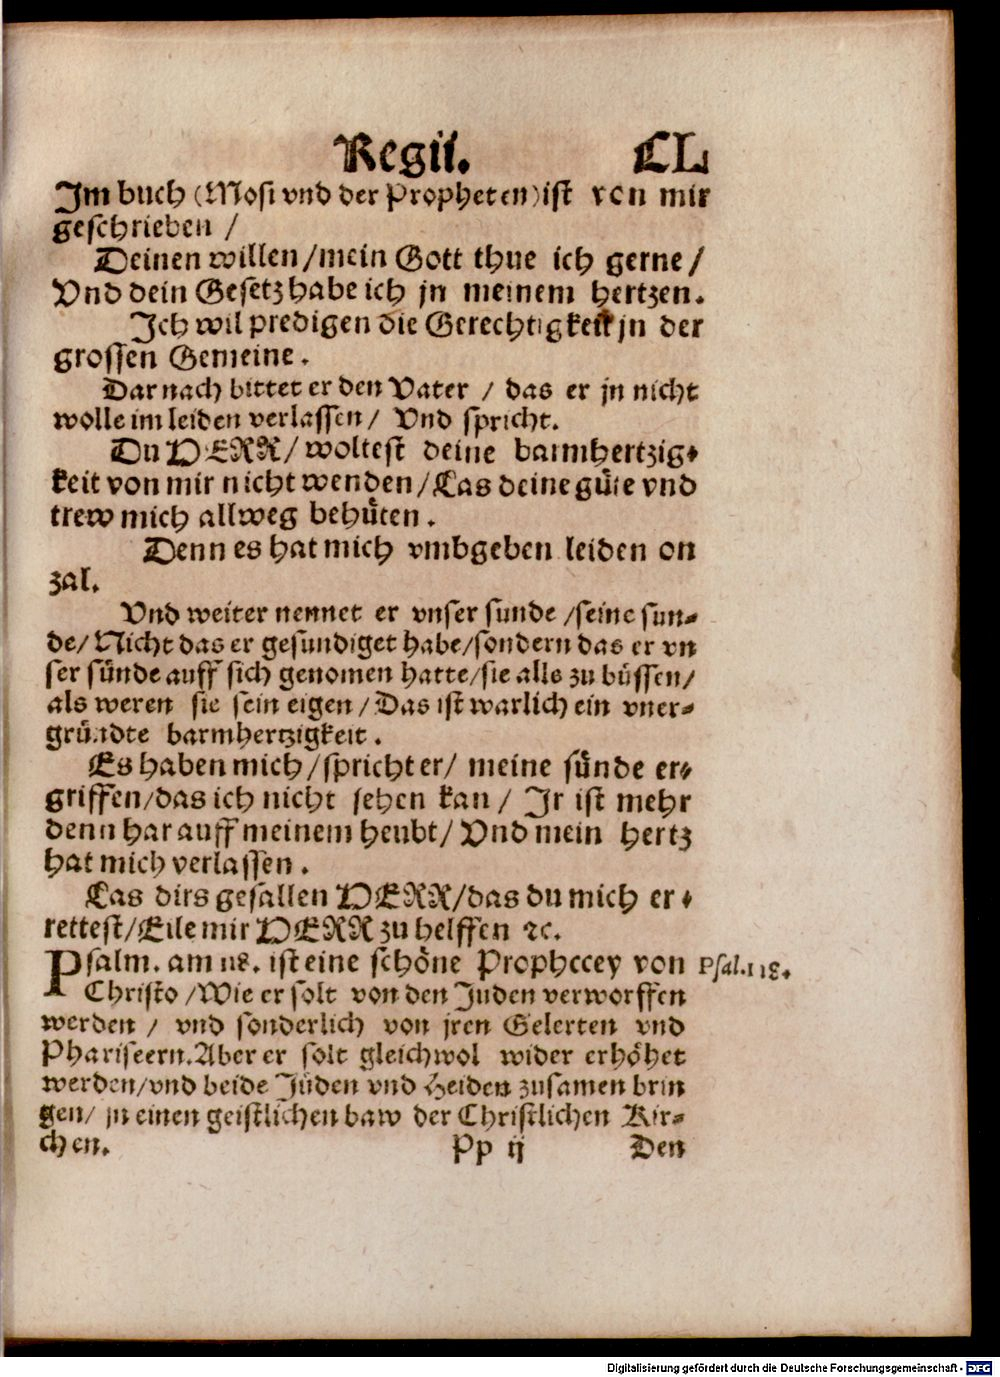 Regii. CL
Im buch (Mosi vnd der Propheten) ist von mir
geschrieben /
Deinen willen / mein Gott thue ich gerne /
Vnd dein Gesetz habe ich jn meinem hertzen.
Ich wil predigen die Gerechtigkeit jn der
grossen Gemeine.
Dar nach bittet er den Vater / das er jn nicht
wolle im leiden verlassen / Vnd spricht.
Du HERR / woltest deine barmhertzig⸗
keit von mir nicht wenden / Las deine gůte vnd
trew mich allweg behůten.
Denn es hat mich vmbgeben leiden on
zal.
Vnd weiter nennet er vnser sunde / seine sun⸗
de / Nicht das er gesundiget habe / sondern das er vn
ser sünde auff sich genomen hatte / sie alls zu büssen /
als weren sie sein eigen / Das ist warlich ein vner⸗
gründte barmhertzigkeit.
Es haben mich / spricht er / meine sůnde er⸗
griffen / das ich nicht sehen kan / Ir ist mehr
denn har auff meinem heubt / Vnd mein hertz
hat mich verlassen.
Las dirs gefallen HERR / das du mich er⸗
rettest / Eile mir HERR zu helffen ꝛc.
Psalm. am 118. ist eine schöne Prophecey von Psal. 118.
Christo / Wie er solt von den Juden verworffen
werden / vnd sonderlich von jren Gelerten vnd
Phariseern. Aber er solt gleichwol wider erhöhet
werden / vnd beide Jüden vnd Heiden zusamen brin
gen / jn einen geistlichen baw der Christlichen Kir⸗
chen. Pp ij Den
Digitalisierung gefördert durch die Deutsche Forschungsgemeinschaft - DFG